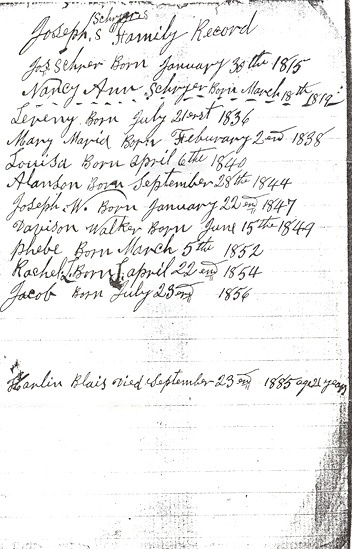 Schryer's
Joseph,s Family Record
Jos Schryer Born January 30th 1815
Nancy Ann Schryer Born March 18th 1819
Leveny Born July 21est 1836
Mary Maria Born Feburary 2end 1838
Louisa Born april 6the 1840
Alanson Born September 28the 1844
Joseph W. Born January 22end 1847
Davison Walker Born June 15the 1849
Phebe Born March 5the 1852
Rachel Born april 22end 1854
Jacob Born July 23end 1856
Blais Died September 23end 1885 aged years